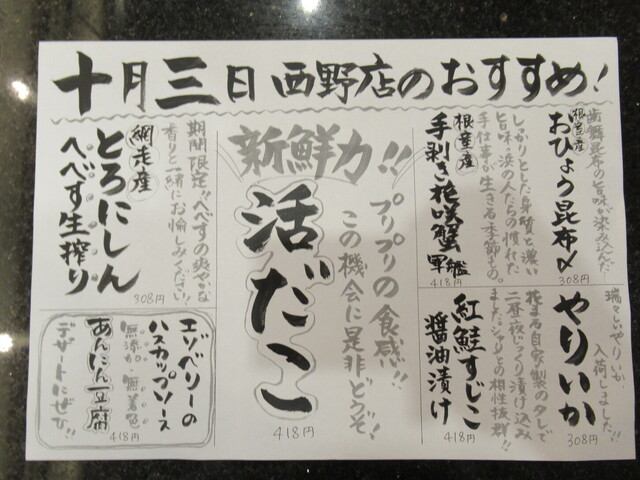 十月三日 西野店のおすすめ!
歯舞昆布の旨味が染み込んだ
根室産
おひょう昆布〆
308円
しっかりとした身質と濃い
旨味、浜の人たちの慣れた
手仕事が生きる季節もの。
根室産
手剥き花咲蟹軍艦
418円
瑞々しいやりいか、
入荷しました!!
やりいか
308円
花まる自家製のタレで
二昼夜じっくり漬け込み
ました。シャリとの相性抜群!!
紅鮭すじこ
醤油漬け
418円
新鮮力!!
プリプリの食感!!
この機会に是非どうぞ!
活だこ
418円
期間限定!!へべすの爽やかな
香りと一緒にお愉しみください!!
網走産
とろにしん
へべす生搾り
308円
エゾベリーの
ハスカップソース
無添加・無着色
あんにん豆腐
418円
デザートにぜひ!!